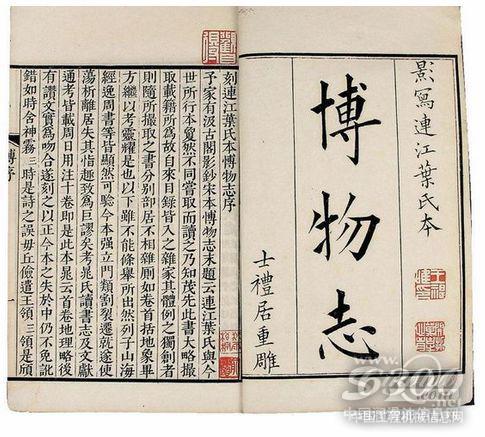 影寫連江葉氏本
博物志
士禮居重雕
刻連江葉氏本博物志序
予家有汲古閣影鈔宋本博物志末題云連江葉氏與今
世所行本敻然不同嘗取而讀之乃知茂先此書大略撮
取載籍所爲故自來目錄皆入之雜家其體例之獨創者
則隨所撮取之書分别部居不相雜厠如卷首括地象畢
方繼以考靈耀是也以下雖不能條舉所出然列子山海
經逸周書等皆顯然可驗今本强立門類割裂遷就遂使
蕩析離居失其恉趣致爲巨謬矣考晁氏讀書志及文獻
通考皆載周日用注十卷卽是此本晁云首卷地理略後
有讚文實爲吻合遂刻之以正今本之失於中仍不免訛
錯如時含神霧三時是詩之誤毋丘儉遣王領三領是頎
博序
一
中国工程机械信息网